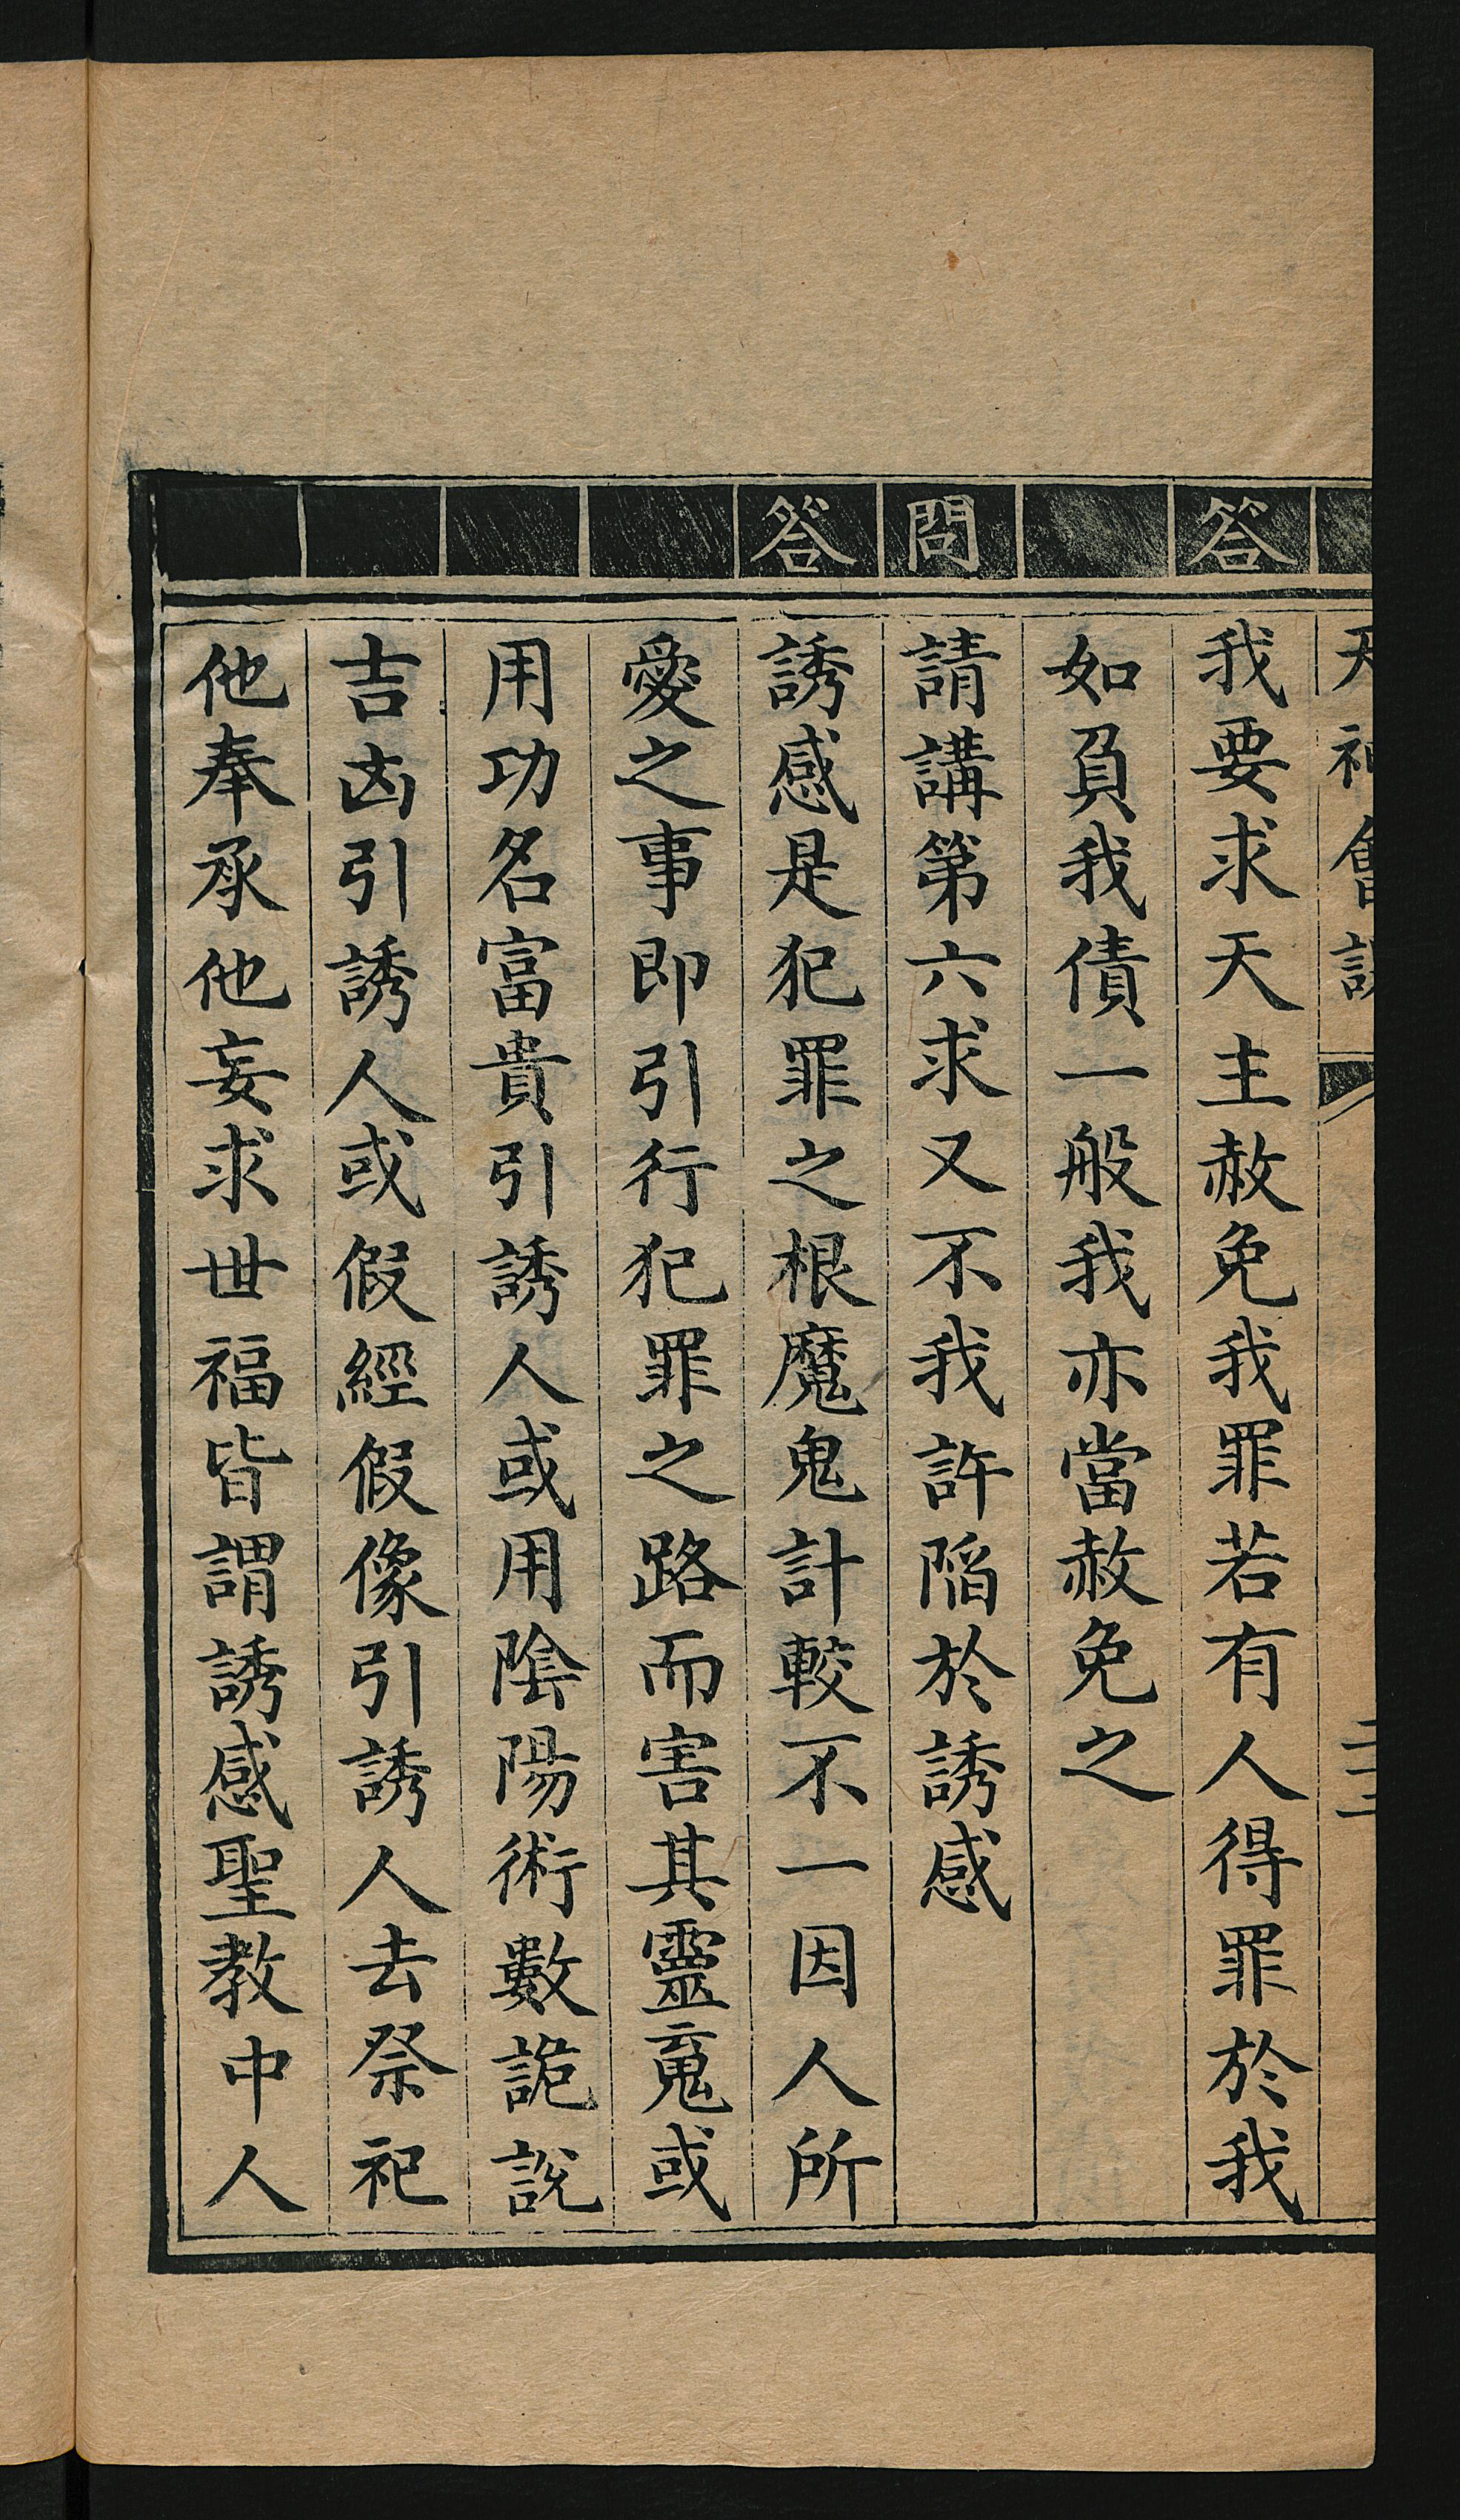 天神會課
答 我要求天主赦免我罪若有人得罪於我
如負我債一般我亦當赦免之
問 請講第六求又不我許陷於誘感
答 誘感是犯罪之根魔鬼計較不一因人所
愛之事即引行犯罪之路而害其靈䰟或
用功名富貴引誘人或用陰陽術數詭說
吉凶引誘人或假經假像引誘人去祭祀
他奉承他妄求世福皆謂誘感聖教中人